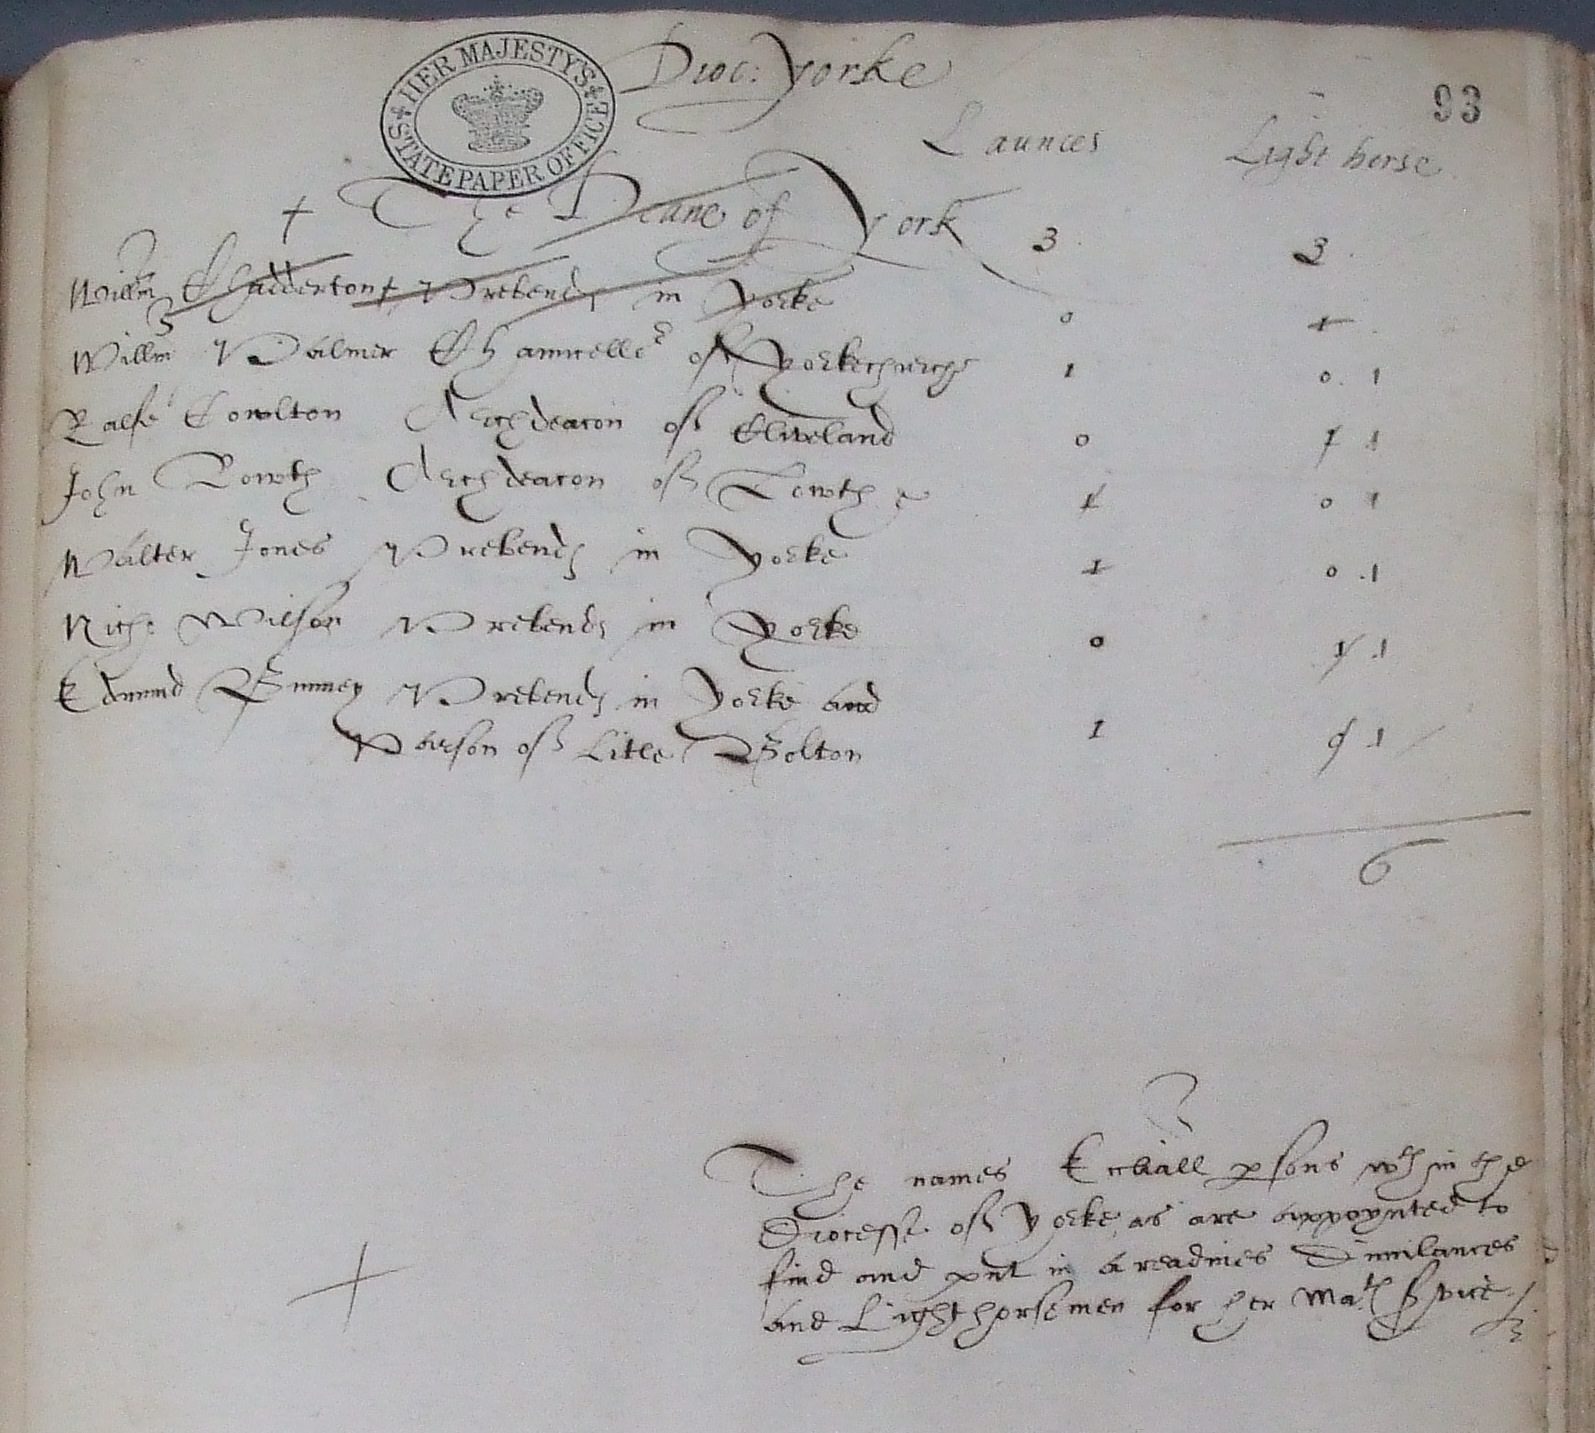 HER MAJESTY'S STATE PAPER OFFICE
Dioc: Yorke
93
Launces Light horse
+ The Deane of York 3 3
Willm Chadderton Prebend in Yorke 0 1
Willm Palmer Chauncellr of Yorkechurche 1 0 . 1
Ralfe Cowlton Archdeacon of Cliveland 0 1 1
John Lowth Archdeacon of Lowth 1 0 1
Walter Jones Prebend in Yorke 1 0 . 1
Nich: Wilson Prebend in Yorke 0 1 . 1
Edmund Bunney Prebend in Yorke and
Parson of Litle Bolton 1 0 . 1
6
The names Ecc'iall psons wth in the
Diocesse of Yorke, as are appoynted to
find and put in a readines Dimilances
and Light horsemen for her Matis Svice